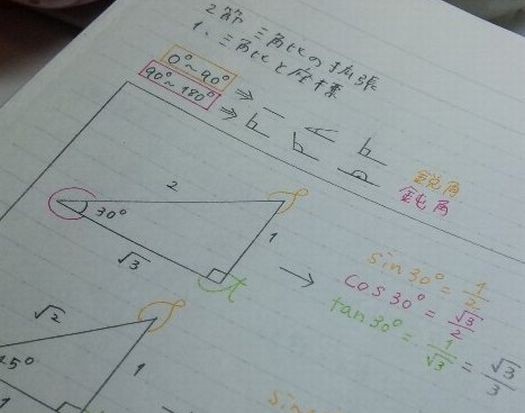 2節 三角比の拡張
1. 三角比と座標
0°~90° ⇒
90°~180° ⇒
鋭角
鈍角
2
30°
1
√3
→
sin30° = 1/2
cos30° = √3/2
tan30° = 1/√3 = √3/3
√2
45°
1
sin